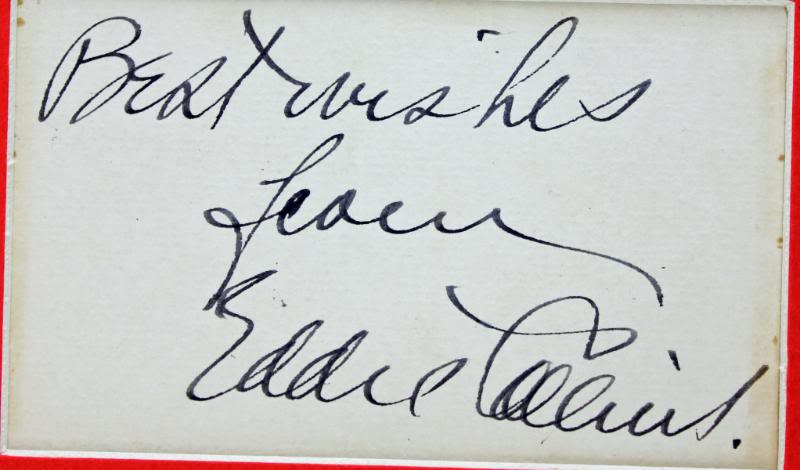 Best wishes
from
Eddie Collins.